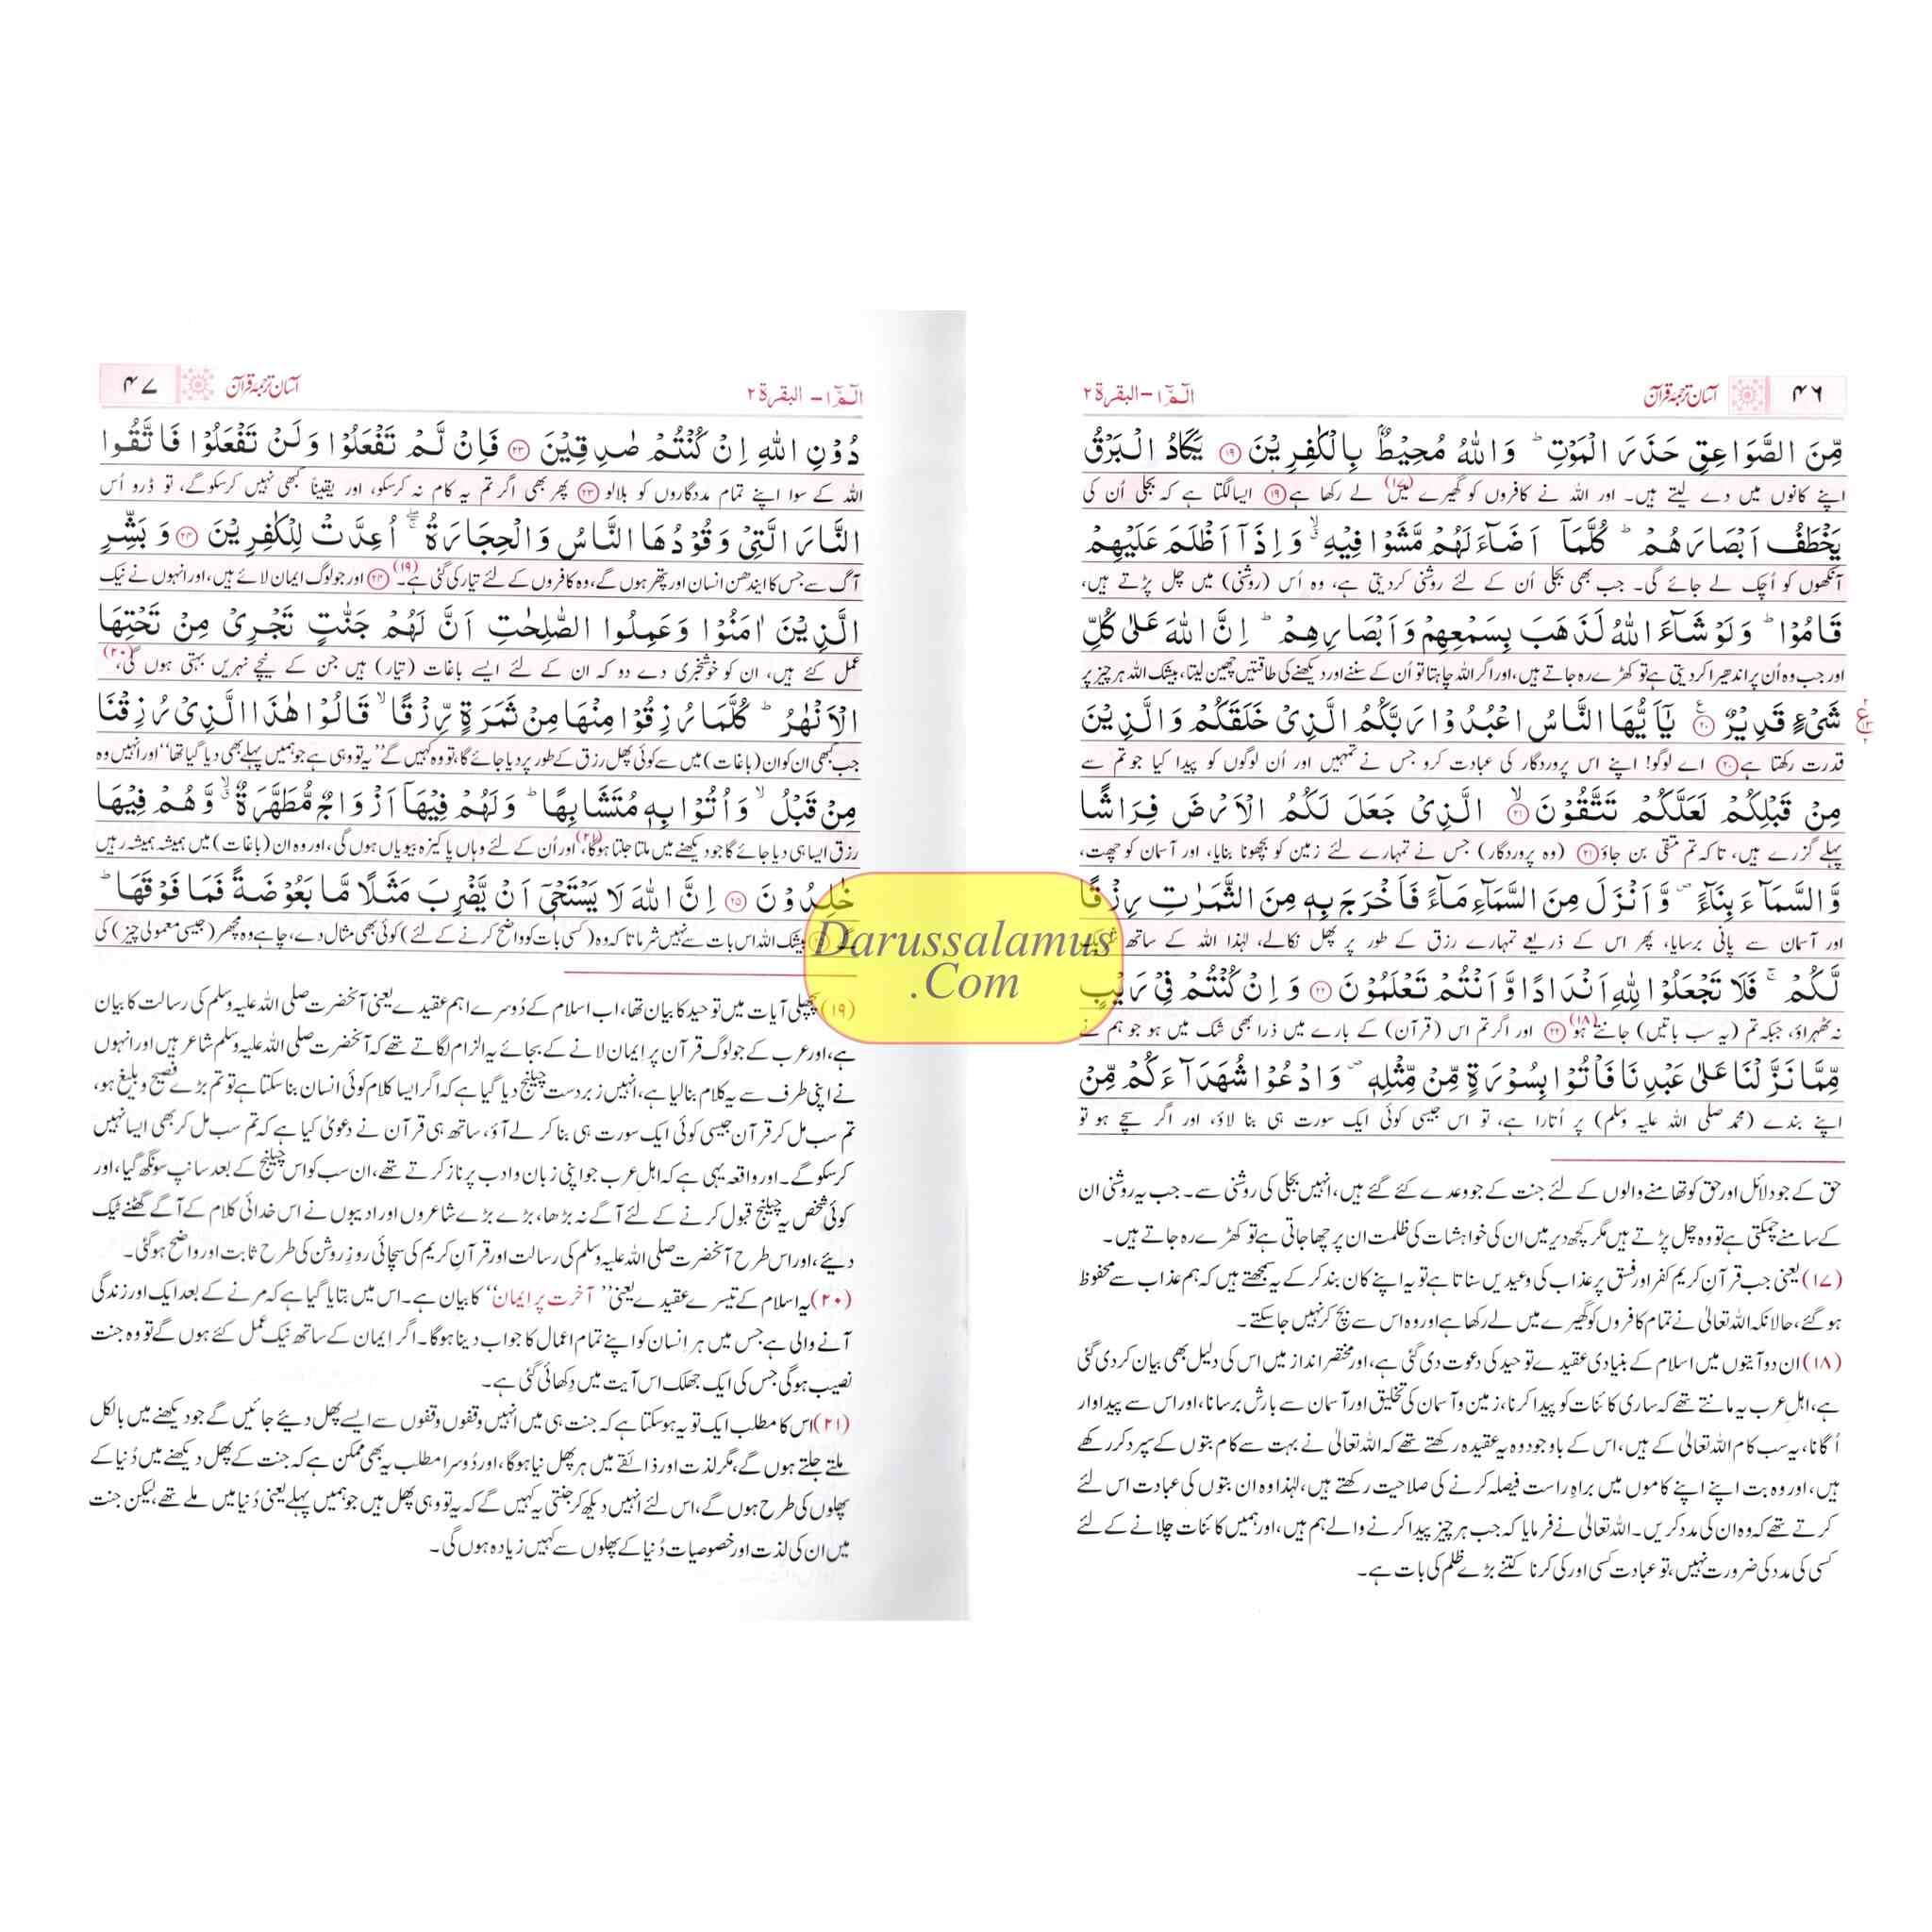 ۴۶
آسان ترجمۂ قرآن
الٓمّٓ ۱ – البقرة ۲
مِّنَ الصَّوَاعِقِ حَذَرَ الْمَوْتِ ؕ وَاللّٰهُ مُحِيْطٌۢ بِالْكٰفِرِيْنَ ۱۹ يَكَادُ الْبَرْقُ
اپنے کانوں میں دے لیتے ہیں۔ اور اللہ نے کافروں کو گھیرے میں (۱۷) لے رکھا ہے ۱۹ ایسا لگتا ہے کہ بجلی اُن کی
يَخْطَفُ اَبْصَارَهُمْ ؕ كُلَّمَاۤ اَضَآءَ لَهُمْ مَّشَوْا فِيْهِ ۙۗ وَاِذَاۤ اَظْلَمَ عَلَيْهِمْ
آنکھوں کو اُچک لے جائے گی۔ جب بھی بجلی اُن کے لئے روشنی کردیتی ہے، وہ اُس (روشنی) میں چل پڑتے ہیں،
قَامُوْا ؕ وَلَوْ شَآءَ اللّٰهُ لَذَهَبَ بِسَمْعِهِمْ وَاَبْصَارِهِمْ ؕ اِنَّ اللّٰهَ عَلٰى كُلِّ
اور جب وہ اُن پر اندھیرا کردیتی ہے تو کھڑے رہ جاتے ہیں، اور اگر اللہ چاہتا تو اُن کے سننے اور دیکھنے کی طاقتیں چھین لیتا، بیشک اللہ ہر چیز پر
شَىْءٍ قَدِيْرٌ ۲۰ يٰۤاَيُّهَا النَّاسُ اعْبُدُوْا رَبَّكُمُ الَّذِىْ خَلَقَكُمْ وَالَّذِيْنَ
قدرت رکھتا ہے ۲۰ اے لوگو! اپنے اس پروردگار کی عبادت کرو جس نے تمہیں اور اُن لوگوں کو پیدا کیا جو تم سے
مِنْ قَبْلِكُمْ لَعَلَّكُمْ تَتَّقُوْنَ ۙ ۲۱ الَّذِىْ جَعَلَ لَكُمُ الْاَرْضَ فِرَاشًا
پہلے گزرے ہیں، تاکہ تم متقی بن جاؤ ۲۱ (وہ پروردگار) جس نے تمہارے لئے زمین کو بچھونا بنایا، اور آسمان کو چھت،
وَّالسَّمَآءَ بِنَآءً ۪ وَّاَنْزَلَ مِنَ السَّمَآءِ مَآءً فَاَخْرَجَ بِهٖ مِنَ الثَّمَرٰتِ رِزْقًا
اور آسمان سے پانی برسایا، پھر اس کے ذریعے تمہارے رزق کے طور پر پھل نکالے، لہٰذا اللہ کے ساتھ شریک
لَّكُمْ ۚ فَلَا تَجْعَلُوْا لِلّٰهِ اَنْدَادًا وَّاَنْتُمْ تَعْلَمُوْنَ ۲۲ وَاِنْ كُنْتُمْ فِىْ رَيْبٍ
نہ ٹھہراؤ، جبکہ تم (یہ سب باتیں) جانتے ہو (۱۸) ۲۲ اور اگر تم اس (قرآن) کے بارے میں ذرا بھی شک میں ہو جو ہم نے
مِّمَّا نَزَّلْنَا عَلٰى عَبْدِنَا فَاْتُوْا بِسُوْرَةٍ مِّنْ مِّثْلِهٖ ۪ وَادْعُوْا شُهَدَآءَكُمْ مِّنْ
اپنے بندے (محمد صلی اللہ علیہ وسلم) پر اُتارا ہے، تو اس جیسی کوئی ایک سورت ہی بنا لاؤ، اور اگر سچے ہو تو
حق کے جو دلائل اور حق کو تھامنے والوں کے لئے جنت کے جو وعدے کئے گئے ہیں، انہیں بجلی کی روشنی سے۔ جب یہ روشنی ان
کے سامنے چمکتی ہے تو وہ چل پڑتے ہیں مگر کچھ دیر میں ان کی خواہشات کی ظلمت ان پر چھا جاتی ہے تو کھڑے رہ جاتے ہیں۔
(۱۷) یعنی جب قرآنِ کریم کفر اور فسق پر عذاب کی وعیدیں سناتا ہے تو یہ اپنے کان بند کر کے یہ سمجھتے ہیں کہ ہم عذاب سے محفوظ
ہو گئے، حالانکہ اللہ تعالیٰ نے تمام کافروں کو گھیرے میں لے رکھا ہے اور وہ اس سے بچ کر نہیں جا سکتے۔
(۱۸) ان دو آیتوں میں اسلام کے بنیادی عقیدے توحید کی دعوت دی گئی ہے، اور مختصر انداز میں اس کی دلیل بھی بیان کر دی گئی
ہے، اہلِ عرب یہ مانتے تھے کہ ساری کائنات کو پیدا کرنا، زمین و آسمان کی تخلیق اور آسمان سے بارش برسانا، اور اس سے پیداوار
اُگانا، یہ سب کام اللہ تعالیٰ کے ہیں، اس کے باوجود وہ یہ عقیدہ رکھتے تھے کہ اللہ تعالیٰ نے بہت سے کام بتوں کے سپرد کر رکھے
ہیں، اور وہ بت اپنے اپنے کاموں میں براہِ راست فیصلہ کرنے کی صلاحیت رکھتے ہیں، لہٰذا وہ ان بتوں کی عبادت اس لئے
کرتے تھے کہ وہ ان کی مدد کریں۔ اللہ تعالیٰ نے فرمایا کہ جب ہر چیز پیدا کرنے والے ہم ہیں، اور ہمیں کائنات چلانے کے لئے
کسی کی مدد کی ضرورت نہیں، تو عبادت کسی اور کی کرنا کتنے بڑے ظلم کی بات ہے۔
الٓمّٓ ۱ – البقرة ۲
آسان ترجمۂ قرآن
۴۷
دُوْنِ اللّٰهِ اِنْ كُنْتُمْ صٰدِقِيْنَ ۲۳ فَاِنْ لَّمْ تَفْعَلُوْا وَلَنْ تَفْعَلُوْا فَاتَّقُوا
اللہ کے سوا اپنے تمام مددگاروں کو بلالو ۲۳ پھر بھی اگر تم یہ کام نہ کرسکو، اور یقیناً کبھی نہیں کرسکوگے، تو ڈرو اُس
النَّارَ الَّتِىْ وَقُوْدُهَا النَّاسُ وَالْحِجَارَةُ ۖۚ اُعِدَّتْ لِلْكٰفِرِيْنَ ۲۴ وَبَشِّرِ
آگ سے جس کا ایندھن انسان اور پتھر ہوں گے، وہ کافروں کے لئے تیار کی گئی ہے۔ (۱۹) ۲۴ اور جو لوگ ایمان لائے ہیں، اور انہوں نے نیک
الَّذِيْنَ اٰمَنُوْا وَعَمِلُوا الصّٰلِحٰتِ اَنَّ لَهُمْ جَنّٰتٍ تَجْرِىْ مِنْ تَحْتِهَا
عمل کئے ہیں، ان کو خوشخبری دے دو کہ ان کے لئے ایسے باغات (تیار) ہیں جن کے نیچے نہریں بہتی ہوں گی، (۲۰)
الْاَنْهٰرُ ؕ كُلَّمَا رُزِقُوْا مِنْهَا مِنْ ثَمَرَةٍ رِّزْقًا ۙ قَالُوْا هٰذَا الَّذِىْ رُزِقْنَا
جب کبھی ان کو ان (باغات) میں سے کوئی پھل رزق کے طور پر دیا جائے گا، تو وہ کہیں گے ”یہ تو وہی ہے جو ہمیں پہلے بھی دیا گیا تھا“ اور انہیں وہ
مِنْ قَبْلُ ۙ وَاُتُوْا بِهٖ مُتَشَابِهًا ؕ وَلَهُمْ فِيْهَاۤ اَزْوَاجٌ مُّطَهَّرَةٌ ۙۗ وَّهُمْ فِيْهَا
رزق ایسا ہی دیا جائے گا جو دیکھنے میں ملتا جلتا ہوگا، (۲۱) اور اُن کے لئے وہاں پاکیزہ بیویاں ہوں گی، اور وہ ان (باغات) میں ہمیشہ ہمیشہ رہیں
خٰلِدُوْنَ ۲۵ اِنَّ اللّٰهَ لَا يَسْتَحْىٖۤ اَنْ يَّضْرِبَ مَثَلًا مَّا بَعُوْضَةً فَمَا فَوْقَهَا ؕ
گے بیشک اللہ اس بات سے نہیں شرماتا کہ وہ (کسی بات کو واضح کرنے کے لئے) کوئی بھی مثال دے، چاہے وہ مچھر (جیسی معمولی چیز) کی
(۱۹) پچھلی آیات میں توحید کا بیان تھا، اب اسلام کے دُوسرے اہم عقیدے یعنی آنحضرت صلی اللہ علیہ وسلم کی رسالت کا بیان
ہے، اور عرب کے جو لوگ قرآن پر ایمان لانے کے بجائے یہ الزام لگاتے تھے کہ آنحضرت صلی اللہ علیہ وسلم شاعر ہیں اور انہوں
نے اپنی طرف سے یہ کلام بنالیا ہے، انہیں زبردست چیلنج دیا گیا ہے کہ اگر ایسا کلام کوئی انسان بنا سکتا ہے تو تم بڑے فصیح و بلیغ ہو،
تم سب مل کر قرآن جیسی کوئی ایک سورت ہی بنا کر لے آؤ، ساتھ ہی قرآن نے دعویٰ کیا ہے کہ تم سب مل کر بھی ایسا نہیں
کرسکو گے۔ اور واقعہ یہی ہے کہ اہلِ عرب جو اپنی زبان و ادب پر ناز کرتے تھے، ان سب کو اس چیلنج کے بعد سانپ سونگھ گیا، اور
کوئی شخص یہ چیلنج قبول کرنے کے لئے آگے نہ بڑھا، بڑے بڑے شاعروں اور ادیبوں نے اس خدائی کلام کے آگے گھٹنے ٹیک
دیئے، اور اس طرح آنحضرت صلی اللہ علیہ وسلم کی رسالت اور قرآنِ کریم کی سچائی روزِ روشن کی طرح ثابت اور واضح ہوگئی۔
(۲۰) یہ اسلام کے تیسرے عقیدے یعنی ”آخرت پر ایمان“ کا بیان ہے۔ اس میں بتایا گیا ہے کہ مرنے کے بعد ایک اور زندگی
آنے والی ہے جس میں ہر انسان کو اپنے تمام اعمال کا جواب دینا ہوگا۔ اگر ایمان کے ساتھ نیک عمل کئے ہوں گے تو وہ جنت
نصیب ہوگی جس کی ایک جھلک اس آیت میں دِکھائی گئی ہے۔
(۲۱) اس کا مطلب ایک تو یہ ہوسکتا ہے کہ جنت ہی میں انہیں وقفوں وقفوں سے ایسے پھل دیئے جائیں گے جو دیکھنے میں بالکل
ملتے جلتے ہوں گے، مگر لذت اور ذائقے میں ہر پھل نیا ہوگا، اور دُوسرا مطلب یہ بھی ممکن ہے کہ جنت کے پھل دیکھنے میں دُنیا کے
پھلوں کی طرح ہوں گے، اس لئے انہیں دیکھ کر جنتی یہ کہیں گے کہ یہ تو وہی پھل ہیں جو ہمیں پہلے یعنی دُنیا میں ملے تھے، لیکن جنت
میں ان کی لذت اور خصوصیات دُنیا کے پھلوں سے کہیں زیادہ ہوں گی۔
Darussalamus
.Com